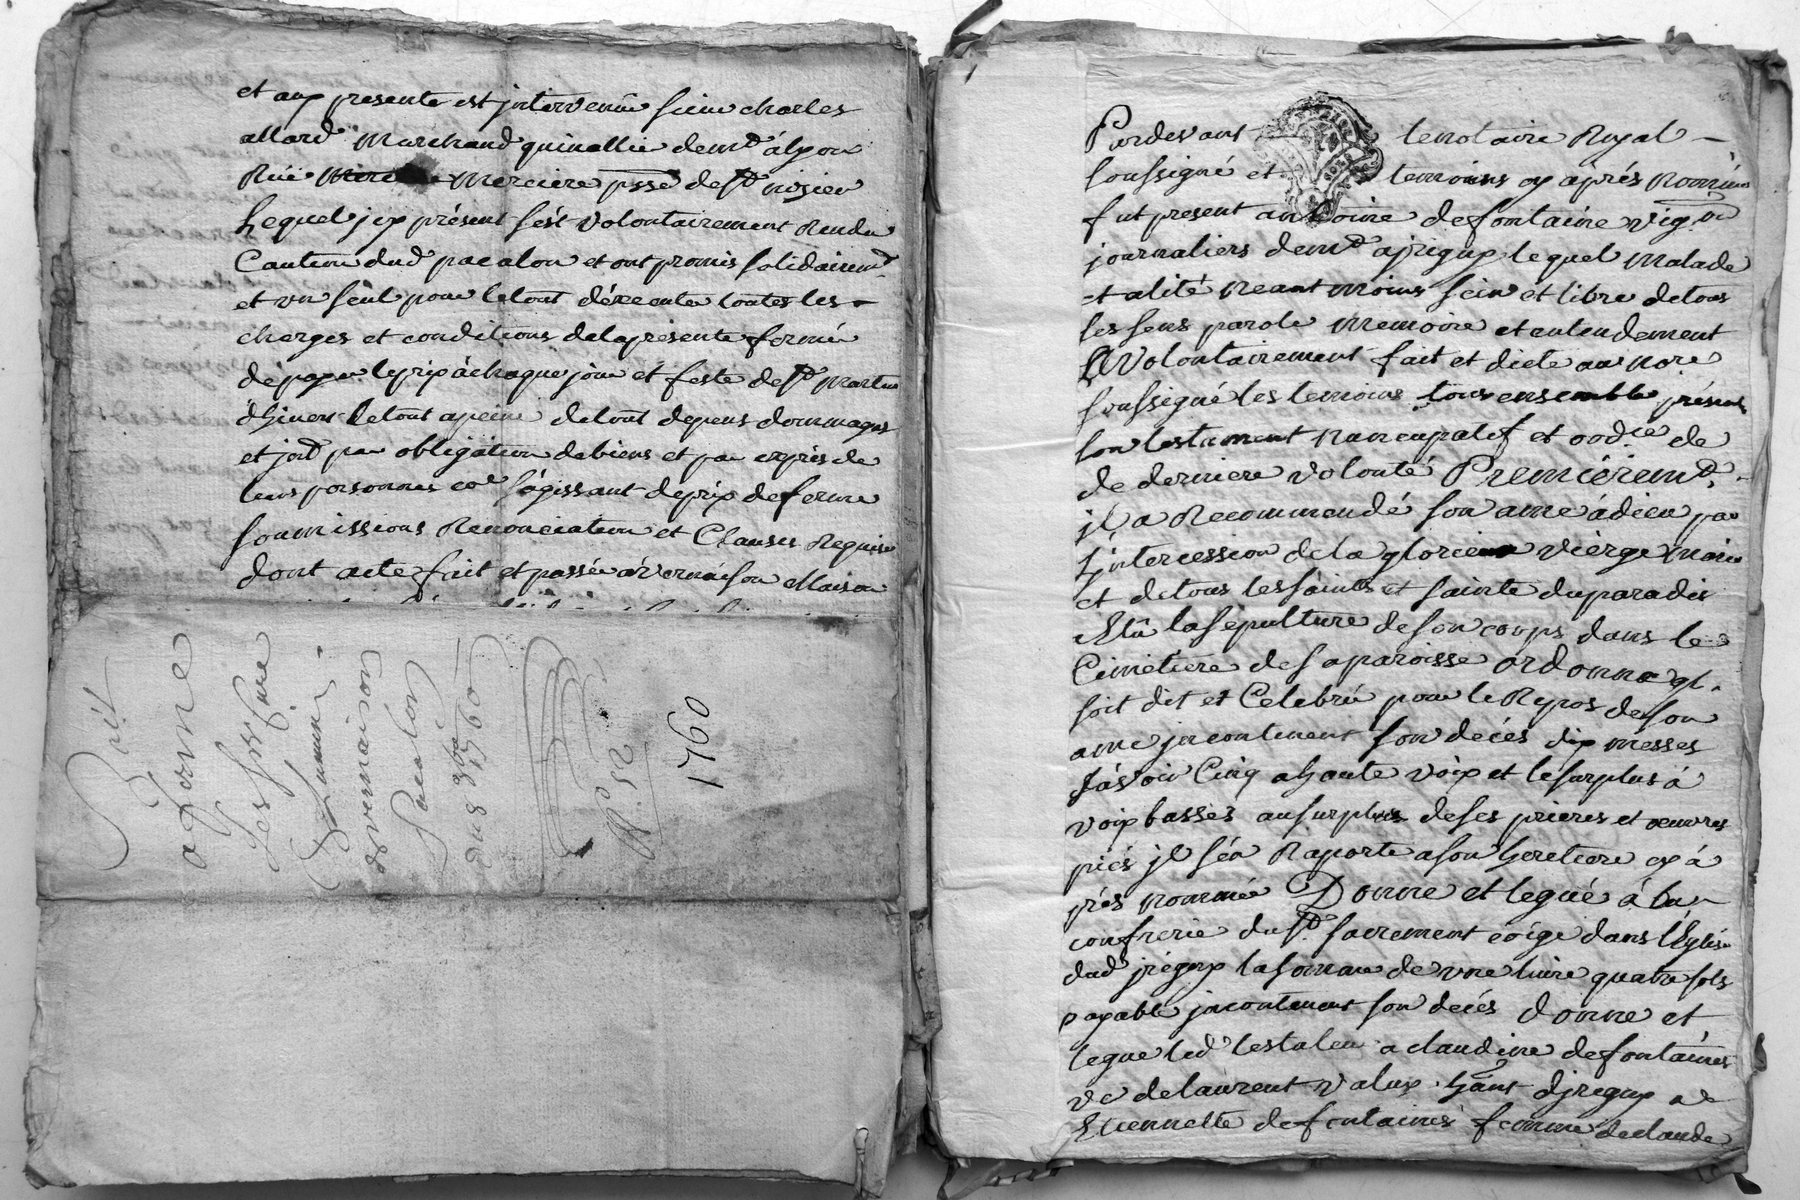 et aux presente est jntervenu sieur charles
allard Marchand quinallier demt á lyon
Rüe Merciere psse de st nizier
Lequel jcy présent s'est volontairement Rendu
Caution dud pacalon et ont promis solidairemt
et un seul pour le tout d'éxecuter toutes les
charges et conditions de la présente ferme
de payer le prix à chaque jour et feste de st martin
d'hiver le tout a peine de tout depens dommages
et jnts par obligation de biens et par exprès de
leurs personnes coe s'agissant de prix de ferme
soumissions Renonciation et Clauses Requise
dont acte fait et passé a vernaison Maison
Bail
a ferme
Les srs
de vernaison
du 8 xbre 1760
N° 52
1760
Pardevant le notaire Royal
soussigné et temoins cy aprés Nommés
fut present antoine defontaine vigon
journaliers demt a jrigny lequel Malade
et alité Neant moins sein et libre de tous
ses sens parole Memoire et entendement
a Volontairement fait et dicté au nore
soussigné les temoins tous ensemble présens
son testament nuncupatif et ordce de
de derniere volonté Premiérémt
jl a Recommendé son ame à dieu par
L'jntercession de la glorieuse viérge marie
et de tous les saints et sainte du paradis
Elû la sépulture de son corps dans le
Cimétiere de sa paroisse ordonne ql
soit dit et Celebré pour le Repos de son
ame jncontinent son décés dix messes
sávoir Cinq a haute voix et le surplus à
voix basses au surplus de ses prieres et oeuvres
piés jl s'en Raporte a son heretiere cy á
prés nommée Donne et legué à la
confrerie du st sacrement érigé dans l'Eglise
dud jrigny la somme de une livre quatre sols
payable jncontinent son decés donne et
legue led testateur a claudine defontaines
ve de laurent valux hant d'jrigny a
Etiennette defontaines femme de claude